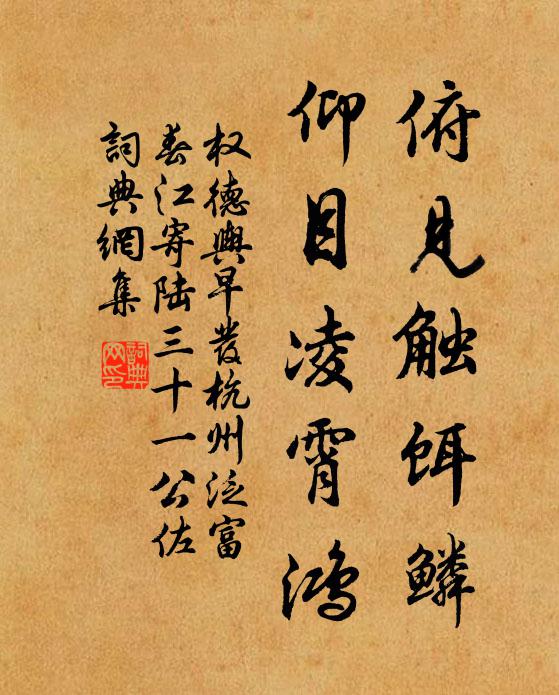 俯见触饵鳞
仰目凌霄鸿
权德舆早发杭州泛富
春江寄陆三十一公佐
詞典網集
詞典網印